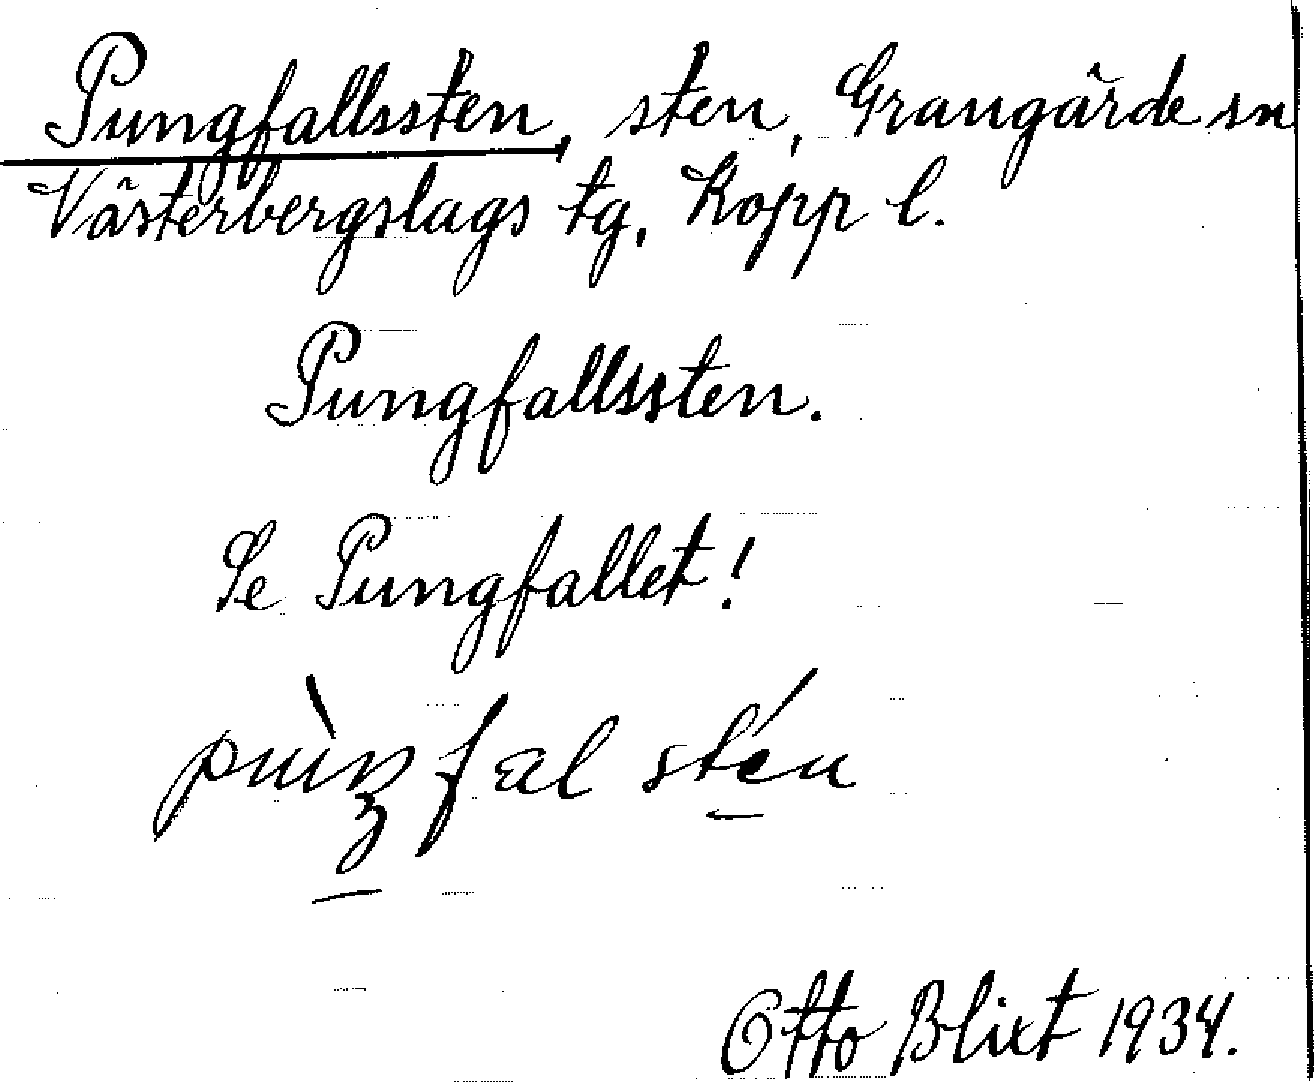 Pungfallssten, sten, Grangärde sn
Västerbergslags tg, Kopp l.
Pungfallssten.
Se Pungfallet!
sten
Otto Blixt 1934.